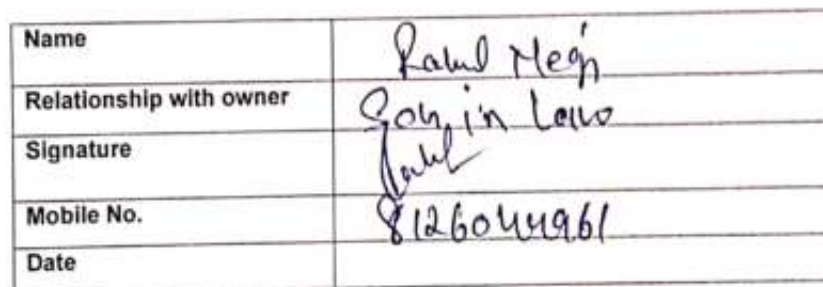 Name Rahul Negi
Relationship with owner Son in Law
Signature Rahul
Mobile No. 8126044961
Date